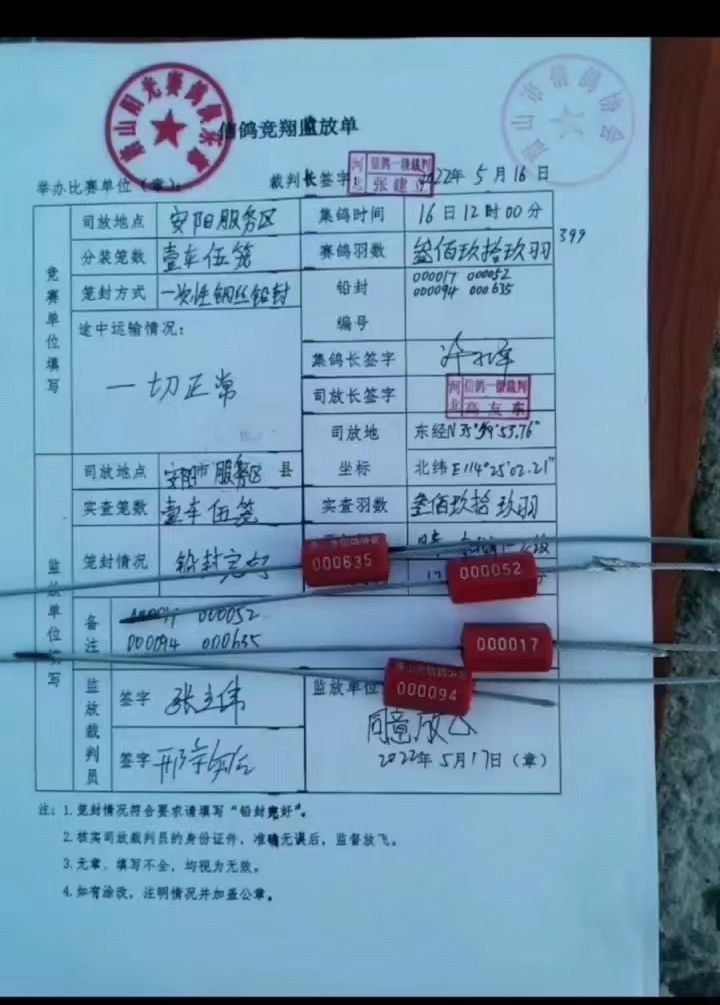 唐山阳光赛鸽俱乐部
唐山市信鸽协会
信鸽竞翔监放单
举办比赛单位（章）：
裁判长签字
河北
信鸽一级裁判
张建立
2022年5月16日
竞赛单位填写
司放地点
安阳服务区
集鸽时间
16日12时00分
分装笼数
壹车伍笼
赛鸽羽数
叁佰玖拾玖羽
399
笼封方式
一次性钢丝铅封
铅封
编号
000017 000052
000094 000635
途中运输情况：
一切正常
集鸽长签字
司放长签字
河北
信鸽一级裁判
高友东
司放地
坐标
东经N35°59′53.76″
北纬E114°25′02.21″
监放单位填写
司放地点
安阳市服务区 县
实查笼数
壹车伍笼
实查羽数
叁佰玖拾玖羽
笼封情况
铅封完好
000635
000052
备注
000052
000094 000635
000017
唐山市信鸽协会
000094
监放裁判员
签字
签字
监放单位
同意放飞
2022年5月17日（章）
注：1.笼封情况符合要求请填写“铅封完好”。
2.核实司放裁判员的身份证件，准确无误后，监督放飞。
3.无章、填写不全，均视为无效。
4.如有涂改，注明情况并加盖公章。